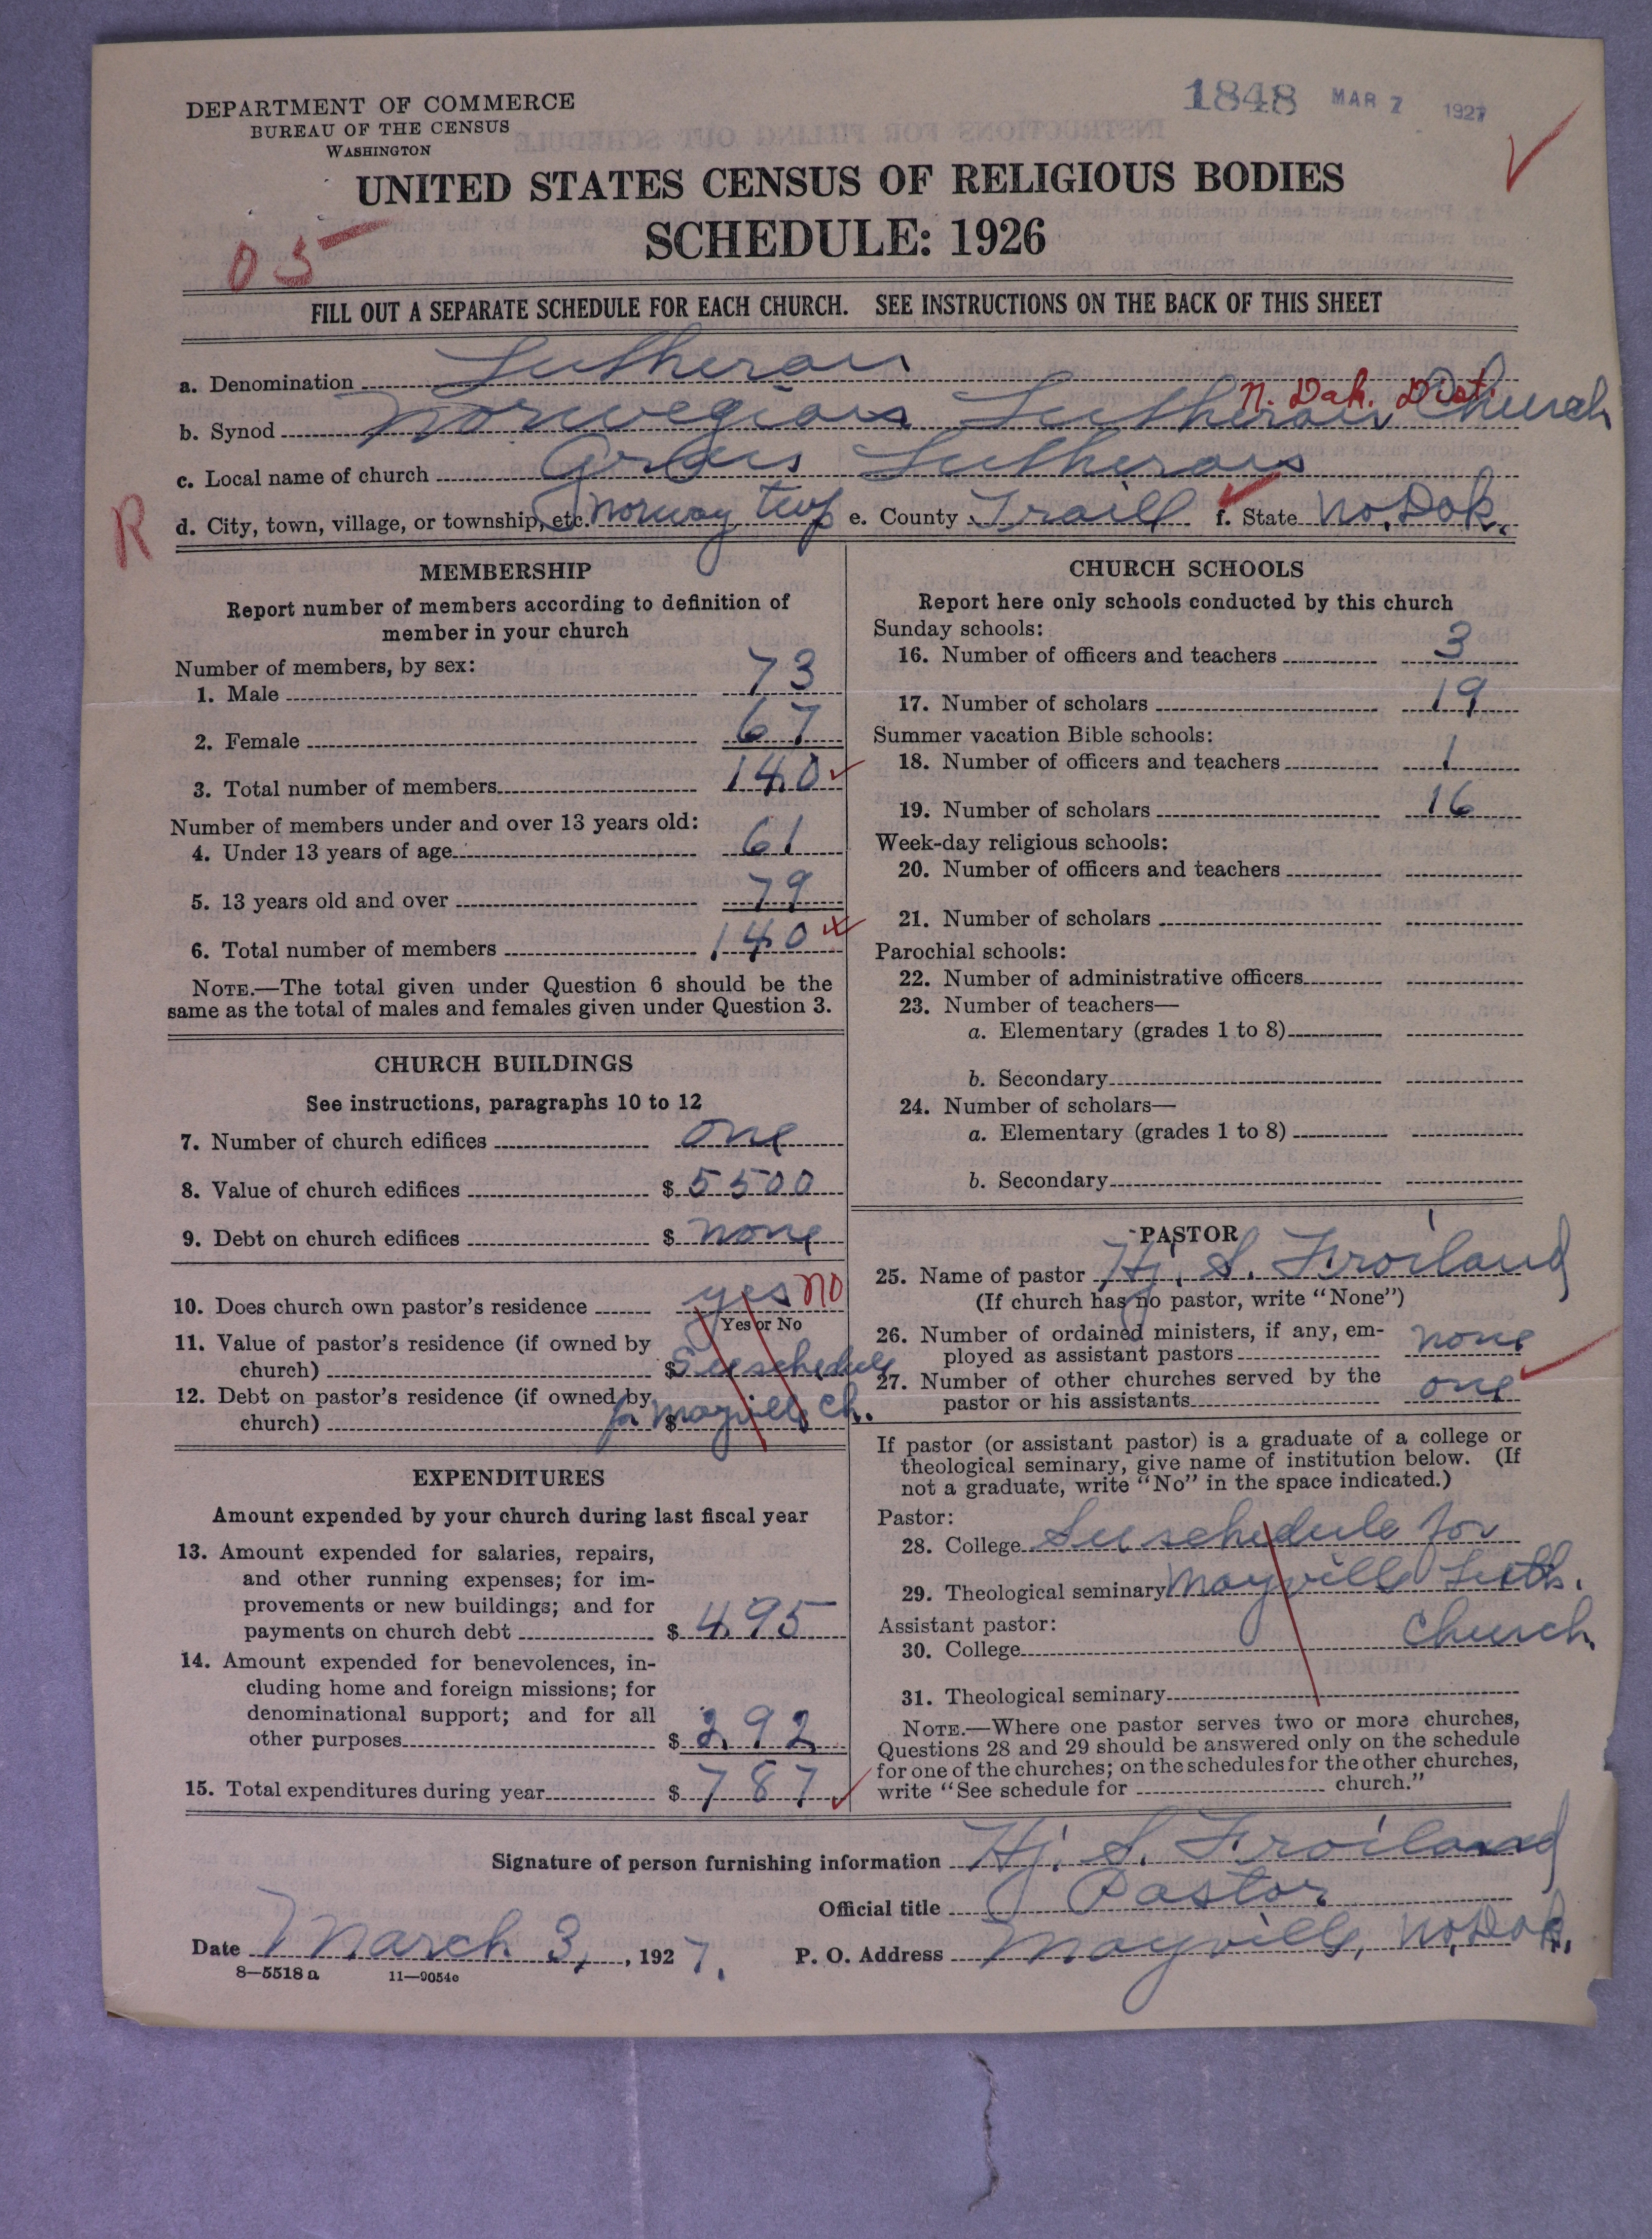 DEPARTMENT OF COMMERCE
BUREAU OF THE CENSUS
WASHINGTON
1848 MAR 7 1927
UNITED STATES CENSUS OF RELIGIOUS BODIES
SCHEDULE: 1926
05
FILL OUT A SEPARATE SCHEDULE FOR EACH CHURCH. SEE INSTRUCTIONS ON THE BACK OF THIS SHEET
a. Denomination Lutheran
N. Dak. Dist.
b. Synod Norwegian Lutheran Church
c. Local name of church Lutheran
R
d. City, town, village, or township, etc. Norway twp e. County Traill f. State No. Dak.
MEMBERSHIP
Report number of members according to definition of
member in your church
Number of members, by sex:
1. Male 73
2. Female 67
3. Total number of members 140
Number of members under and over 13 years old:
4. Under 13 years of age 61
5. 13 years old and over 79
6. Total number of members 140
NOTE.—The total given under Question 6 should be the
same as the total of males and females given under Question 3.
CHURCH BUILDINGS
See instructions, paragraphs 10 to 12
7. Number of church edifices one
8. Value of church edifices $ 5500
9. Debt on church edifices $ none
10. Does church own pastor's residence yes NO
Yes or No
11. Value of pastor's residence (if owned by
church) $ See schedule
12. Debt on pastor's residence (if owned by
church) $ for Mayville Ch.
EXPENDITURES
Amount expended by your church during last fiscal year
13. Amount expended for salaries, repairs,
and other running expenses; for im-
provements or new buildings; and for
payments on church debt $ 495
14. Amount expended for benevolences, in-
cluding home and foreign missions; for
denominational support; and for all
other purposes $ 292
15. Total expenditures during year $ 787
CHURCH SCHOOLS
Report here only schools conducted by this church
Sunday schools:
16. Number of officers and teachers 3
17. Number of scholars 19
Summer vacation Bible schools:
18. Number of officers and teachers 1
19. Number of scholars 16
Week-day religious schools:
20. Number of officers and teachers
21. Number of scholars
Parochial schools:
22. Number of administrative officers
23. Number of teachers—
a. Elementary (grades 1 to 8)
b. Secondary
24. Number of scholars—
a. Elementary (grades 1 to 8)
b. Secondary
PASTOR
25. Name of pastor Hj. S. Froiland
(If church has no pastor, write "None")
26. Number of ordained ministers, if any, em-
ployed as assistant pastors none
27. Number of other churches served by the
pastor or his assistants one
If pastor (or assistant pastor) is a graduate of a college or
theological seminary, give name of institution below. (If
not a graduate, write "No" in the space indicated.)
Pastor:
28. College See schedule for
29. Theological seminary Mayville Luth.
Assistant pastor:
30. College Church
31. Theological seminary
NOTE.—Where one pastor serves two or more churches,
Questions 28 and 29 should be answered only on the schedule
for one of the churches; on the schedules for the other churches,
write "See schedule for church."
Signature of person furnishing information Hj. S. Froiland
Official title Pastor
Date March 3, 1927. P. O. Address Mayville, No. Dak.
8—5518 a 11—9054c